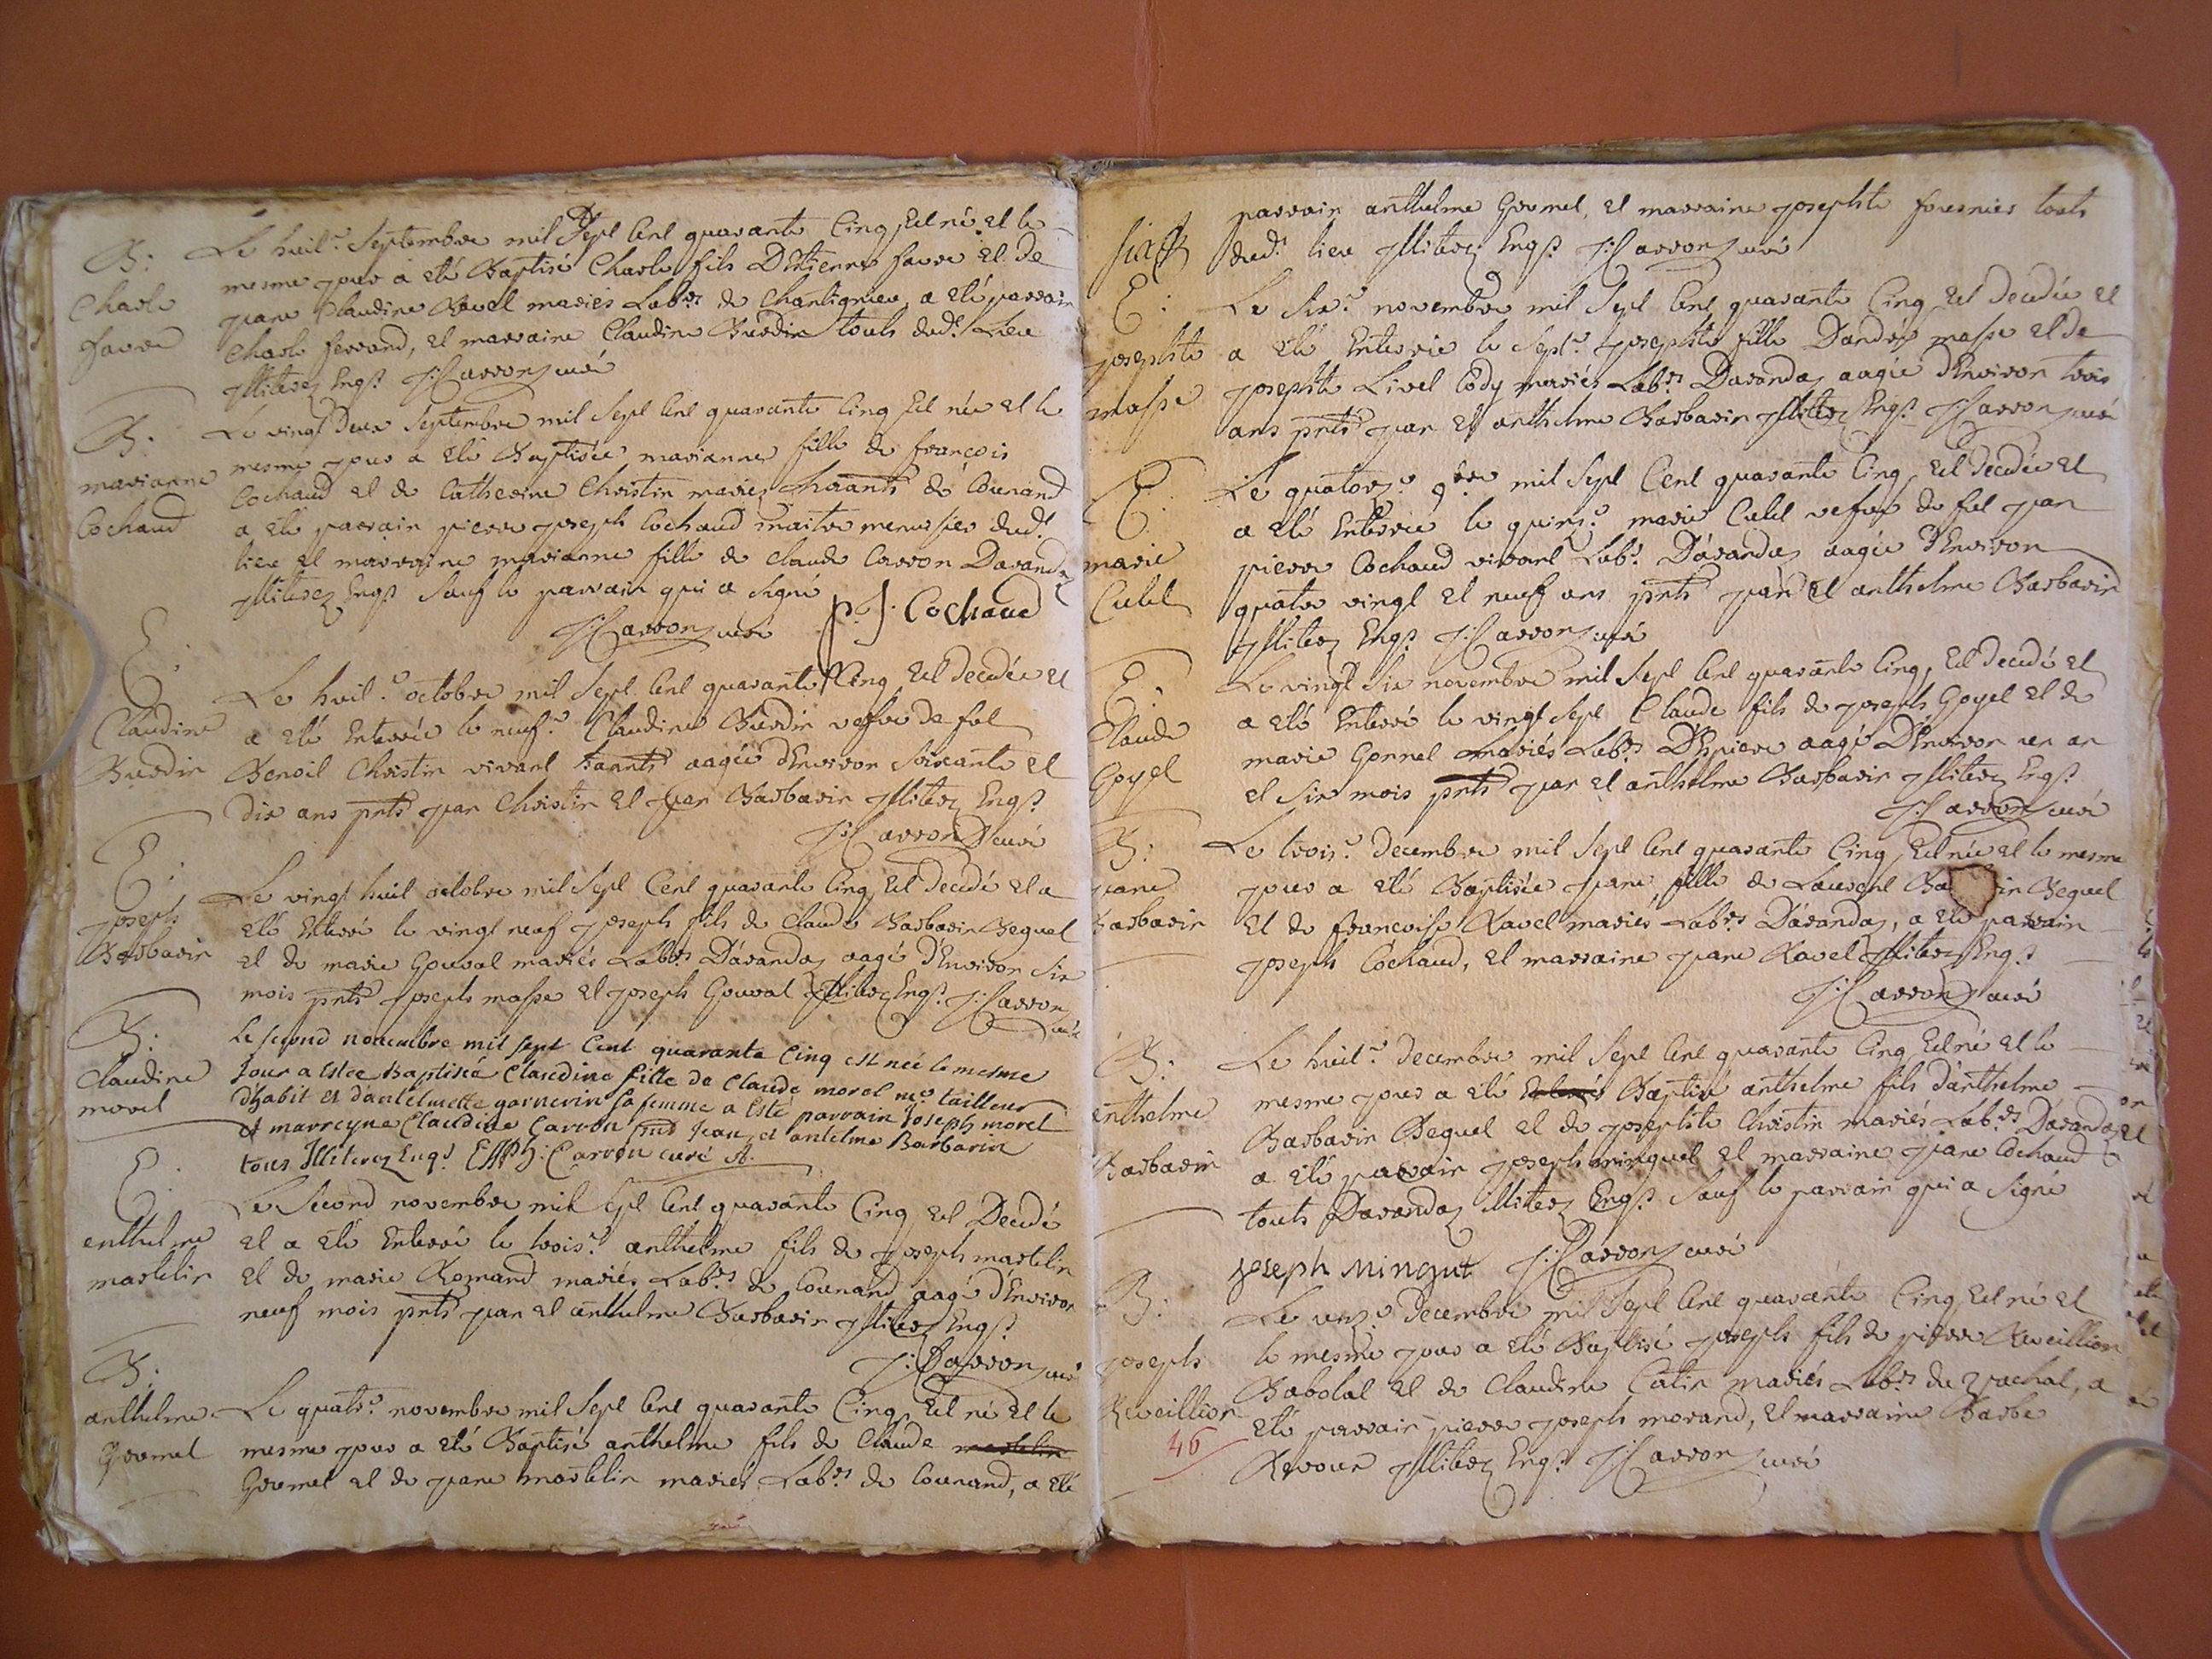 B:
Charle
favre
Le huit.e Septembre mil Sept Cent quarante Cinq Est né et le
mesme jour a eté Baptisé Charle fils D'Estienne favre et De
jane Claudine Ravel mariés Lab.rs de Chantignieu, a eté parrain
Charle ferrand, et marraine Claudine Burdin touts dud.t Lieu
jlliterez Enq.s J: Carron curé
B:
marianne
Cochaud
Le vingt Deux Septembre mil Sept Cent quarante Cinq Est née et le
mesme jour a eté Baptisée marianne fille de françois
Cochaud et de Catherine Christin mariez de Counand
a eté parrain pierre joseph Cochaud maitre menusier dud.t
lieu et marraine marianne fille de claude Carron Davandaz
jlliterez Enq.s Sauf le parrain qui a Signé
J: Carron curé p. J. Cochaud
E:
Claudine
Burdin
Le huit.e octobre mil Sept Cent quarante Cinq Est Decedée et
a eté Enterrée le neuf.e Claudine Burdin vefve de feu
Benoit Christin vivant aagée d'Environ Soixante et
dix ans pnts jean Christin et jean Barbarin jlliterez Enq.s
J: Carron curé
E:
joseph
Barbarin
Le vingt huit octobre mil Sept Cent quarante Cinq Est Decedé et a
eté Enterré le vingt neuf joseph fils de Claude Barbarin Bequet
et de marie Gouval mariés Lab.rs D'avandaz aagé d'Environ Six
mois pnts joseph masse et joseph Gouval jlliterez Enq.s J: Carron
curé
B:
Claudine
morel
Le second novembre mil sept Cent quarante Cinq est née le mesme
Jour a Estée Baptiséé Claudine fille de Claude morel me tailleur
d'habit et d'antelmette garnerin sa femme a Esté parrain Joseph morel
et marreyne Claudine Carron pnts Jean et antelme Barbarin
tous Jlliterez Enq.s Carron curé
E:
enthelme
martelin
Le Second novembre mil Sept Cent quarante Cinq Est Decedé
et a eté Enterré le trois.e anthelme fils de joseph martelin
et de marie Romand mariés Lab.rs de Counand aagé d'Environ
neuf mois pnts jean et anthelme Barbarin jlliterez Enq.s
J: Carron curé
B:
anthelme
Gromel
Le quatr.e novembre mil Sept Cent quarante Cinq Est né et le
mesme jour a eté Baptisé anthelme fils de Claude martelin
Gromel et de jane martelin mariés Lab.rs de Counand, a eté
parrain anthelme Gromel, et marraine josephte fournier touts
dud.t lieu jlliterez Enq.s J: Carron curé
E:
josephte
masse
Le Six.e novembre mil Sept Cent quarante Cinq Est Decedée et
a eté Enterrée le Sept.e josephte fille D'andré masse et de
josephte Livet Cody mariés Lab.rs Davandaz aagée d'Environ trois
ans pnts jean et anthelme Barbarin jlliterez Enq.s J: Carron curé
E:
marie
Cubit
Le quatorz.e 9bre mil Sept Cent quarante Cinq, Est Decedée et
a eté Enterrée le quinz.e marie Cubit vefve de feu jean
pierre Cochaud vivant Lab.r D'avandaz aagée d'Environ
quatre vingt et neuf ans pnts jean et anthelme Barbarin
jlliterez Enq.s J: Carron curé
E:
Claude
Goyet
Le vingt Six novembre mil Sept Cent quarante Cinq, Est Decedé et
a eté Enterré le vingt Sept Claude fils de joseph Goyet et de
marie Gonnet mariés Lab.rs D'Espierre aagé D'Environ un an
et Six mois pnts jean et anthelme Barbarin jlliterez Enq.s
J: Carron curé
B:
jane
Barbarin
Le trois.e Decembre mil Sept Cent quarante Cinq Est née et le mesme
jour a eté Baptisée jane fille de Laurent Ba in Bequet
et de francoise Ravel mariés Lab.rs D'avandaz, a eté parrain
joseph Cochaud, et marraine jane Ravel jlliterez Enq.s
J: Carron curé
B:
anthelme
Barbarin
Le huit.e Decembre mil Sept Cent quarante Cinq Est né et le
mesme jour a eté Baptisé anthelme fils d'anthelme
Barbarin Bequet et de josephte Christin mariés Lab.rs Davandaz
a eté parrain joseph minguet et marraine jane Cochaud
touts Davandaz illiterez Enq.s Sauf le parrain qui a Signé
joseph mingut J: Carron curé
B:
joseph
Reveillion
Le unz.e Decembre mil Sept Cent quarante Cinq Est né et
le mesme jour a eté Baptisé joseph fils de pierre Reveillion
Babolat et de Claudine Catin mariés Lab.rs du , a
eté parrain pierre joseph morand, et marraine Barbe
Revour jlliterez Enq.s J: Carron curé
46